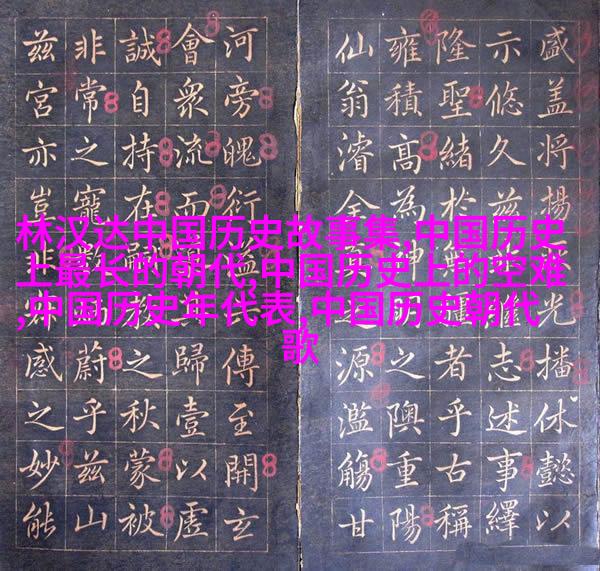 林汉达中国历史故事集,中国历史
上最长的朝代,中国历史上的空难
,中国历史年代表,中国历史朝代
歌
盛盖将揚光播休懿以
示悠久兹志述事繹
隆聖緒於者乎古稱
雍積高為神之隩重陽
仙翁濬全真源濫觴甘
河旁魄衍益傳至開玄
會衆流而歸壹以虛
誠自持在之秋蒙被
非常之寵蔚乎兹山
兹宮亦豈非感之妙能